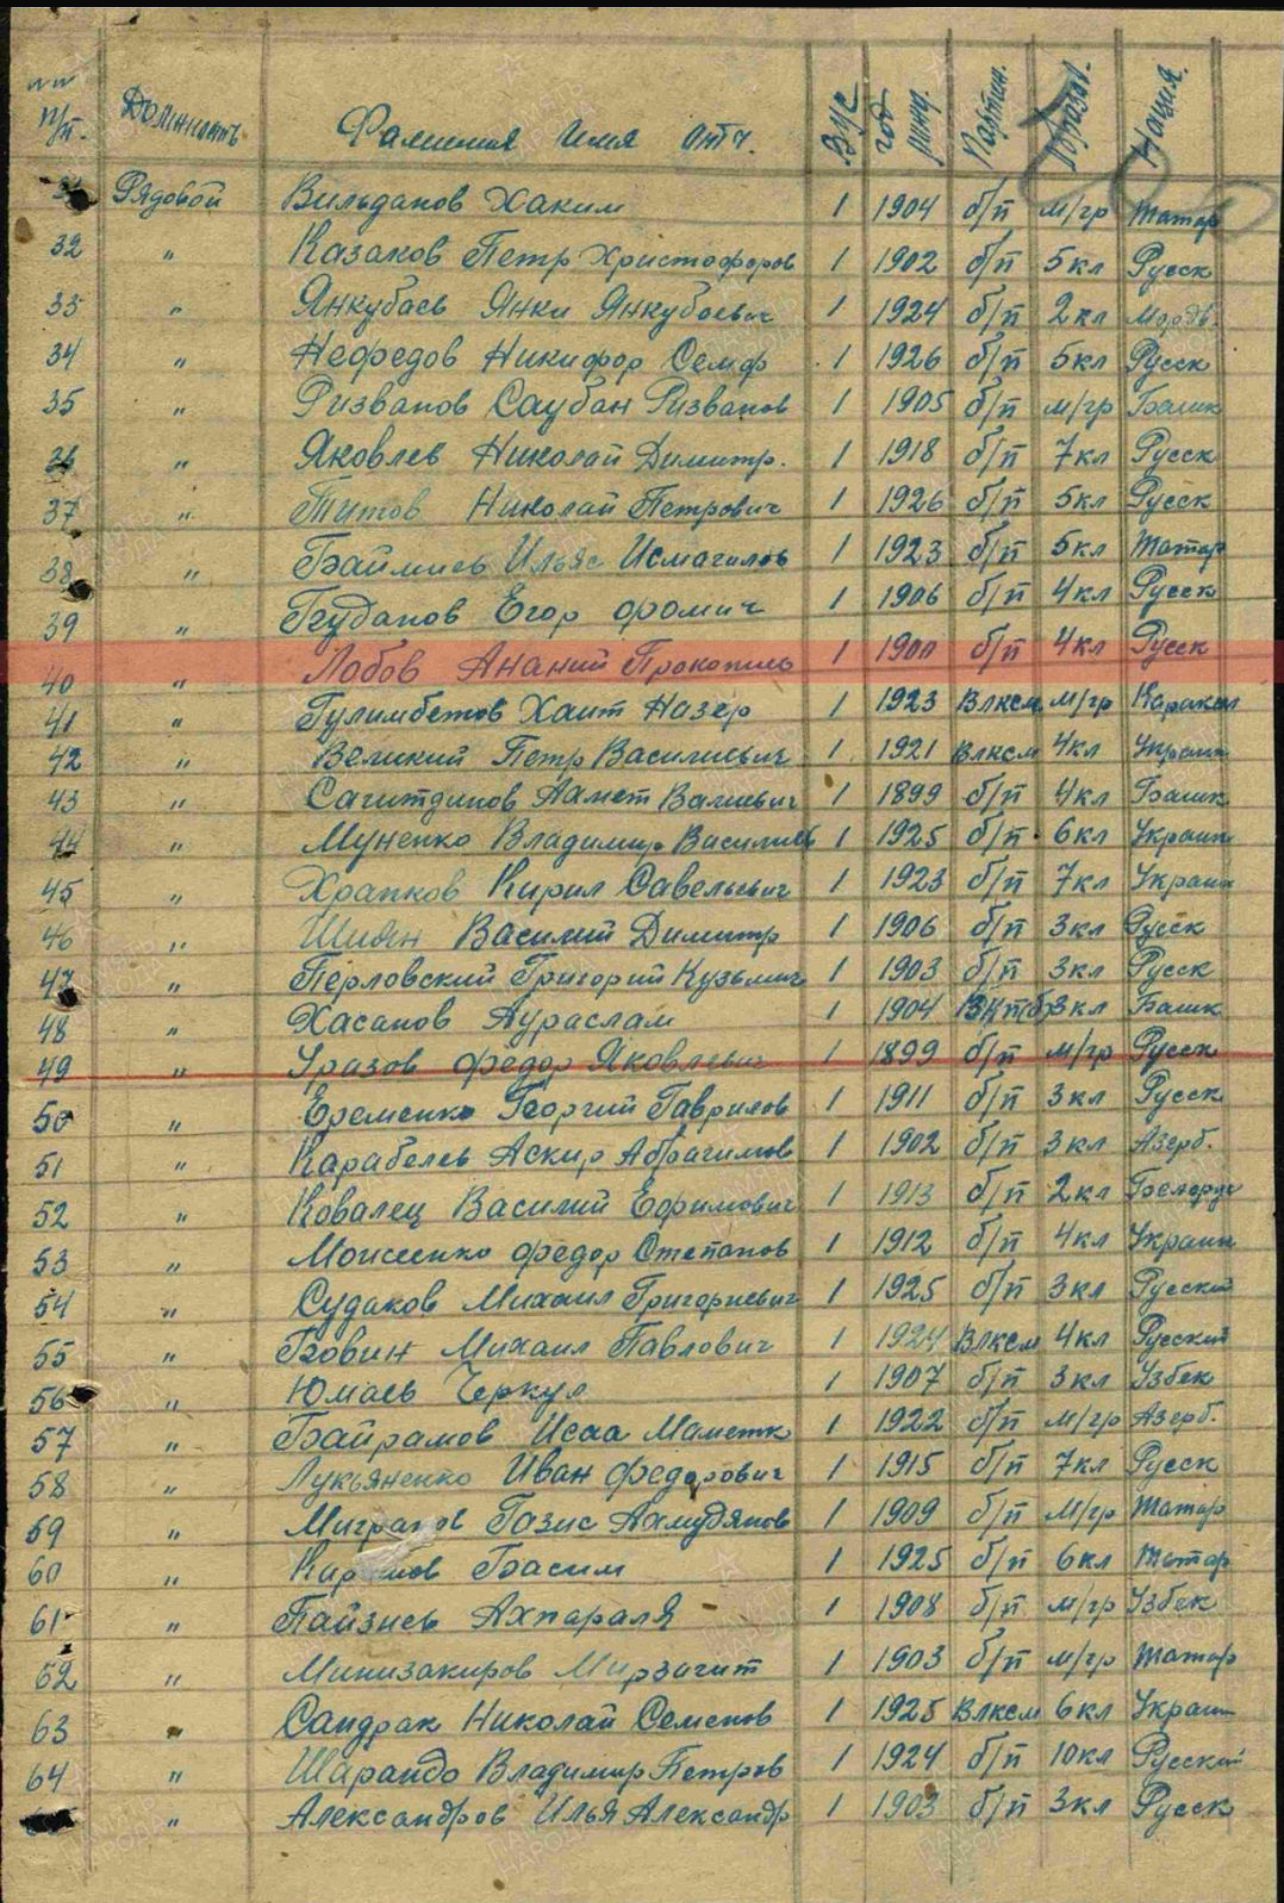 №№ п/п. Должность Фамилия Имя Отч. ВУС год рожд. Партий. Образов. Нация.
Рядовой Вильданов Хаким 1 1904 б/п м/гр Татар
32 " Казаков Петр Христофоров 1 1902 б/п 5кл Русск
33 " Янкубаев Янки Янкубаевич 1 1924 б/п 2кл Мордв.
34 " Нефедов Никифор Семф 1 1926 б/п 5кл Русск
35 " Ризванов Саубан Ризванов 1 1905 б/п м/гр Башк
36 " Яковлев Николай Димитр. 1 1918 б/п 7кл Русск
37 " Титов Николай Петрович 1 1926 б/п 5кл Русск
38 " Ильяс Исмагилов 1 1923 б/п 5кл Татар
39 " Егор Фомич 1 1906 б/п 4кл Русск
40 " Лобов Ананий Прокопьев 1 1900 б/п 4кл Русск
41 " Гулимбетов Хаит Назер 1 1923 Влксм м/гр Каракал
42 " Великий Петр Василиевич 1 1921 Влксм 4кл Украин
43 " Сагитдинов Ахмет Валиевич 1 1899 б/п 4кл Башк
44 " Муненко Владимир Василиев 1 1925 б/п 6кл Украин
45 " Храпков Кирил Савельевич 1 1923 б/п 7кл Украин
46 " Шиян Василий Димитр 1 1906 б/п 3кл Русск
47 " Перловский Григорий Кузьмич 1 1903 б/п 3кл Русск
48 " Хасанов Аураслам 1 1904 ВКП(б) 3кл Башк
49 " Уразов Федор Яковлевич 1 1899 б/п м/гр Русск
50 " Еременко Георгий Гаврилов 1 1911 б/п 3кл Русск
51 " Карабелев Аскир Абрагимов 1 1902 б/п 3кл Азерб.
52 " Ковалец Василий Ефимович 1 1913 б/п 2кл Белорус
53 " Моисеенко Федор Степанов 1 1912 б/п 4кл Украин
54 " Судаков Михаил Григориевич 1 1925 б/п 3кл Русский
55 " Бовин Михаил Павлович 1 1924 Влксм 4кл Русский
56 " Юмаев Черкул 1 1907 б/п 3кл Узбек
57 " Байрамов Исаа Маметк 1 1922 б/п м/гр Азерб.
58 " Лукьяненко Иван Федорович 1 1915 б/п 7кл Русск
59 " Мигранов Газис Ахмудянов 1 1909 б/п м/гр Татар
60 " Басим 1 1925 б/п 6кл Татар
61 " Пайзиев Ахпараля 1 1908 б/п м/гр Узбек
62 " Минизакиров Мирзагит 1 1903 б/п м/гр Татар
63 " Сандрак Николай Семенов 1 1925 Влксм 6кл Украин
64 " Шарандо Владимир Петров 1 1924 б/п 10кл Русский
" Александров Илья Александр 1 1903 б/п 3кл Русск